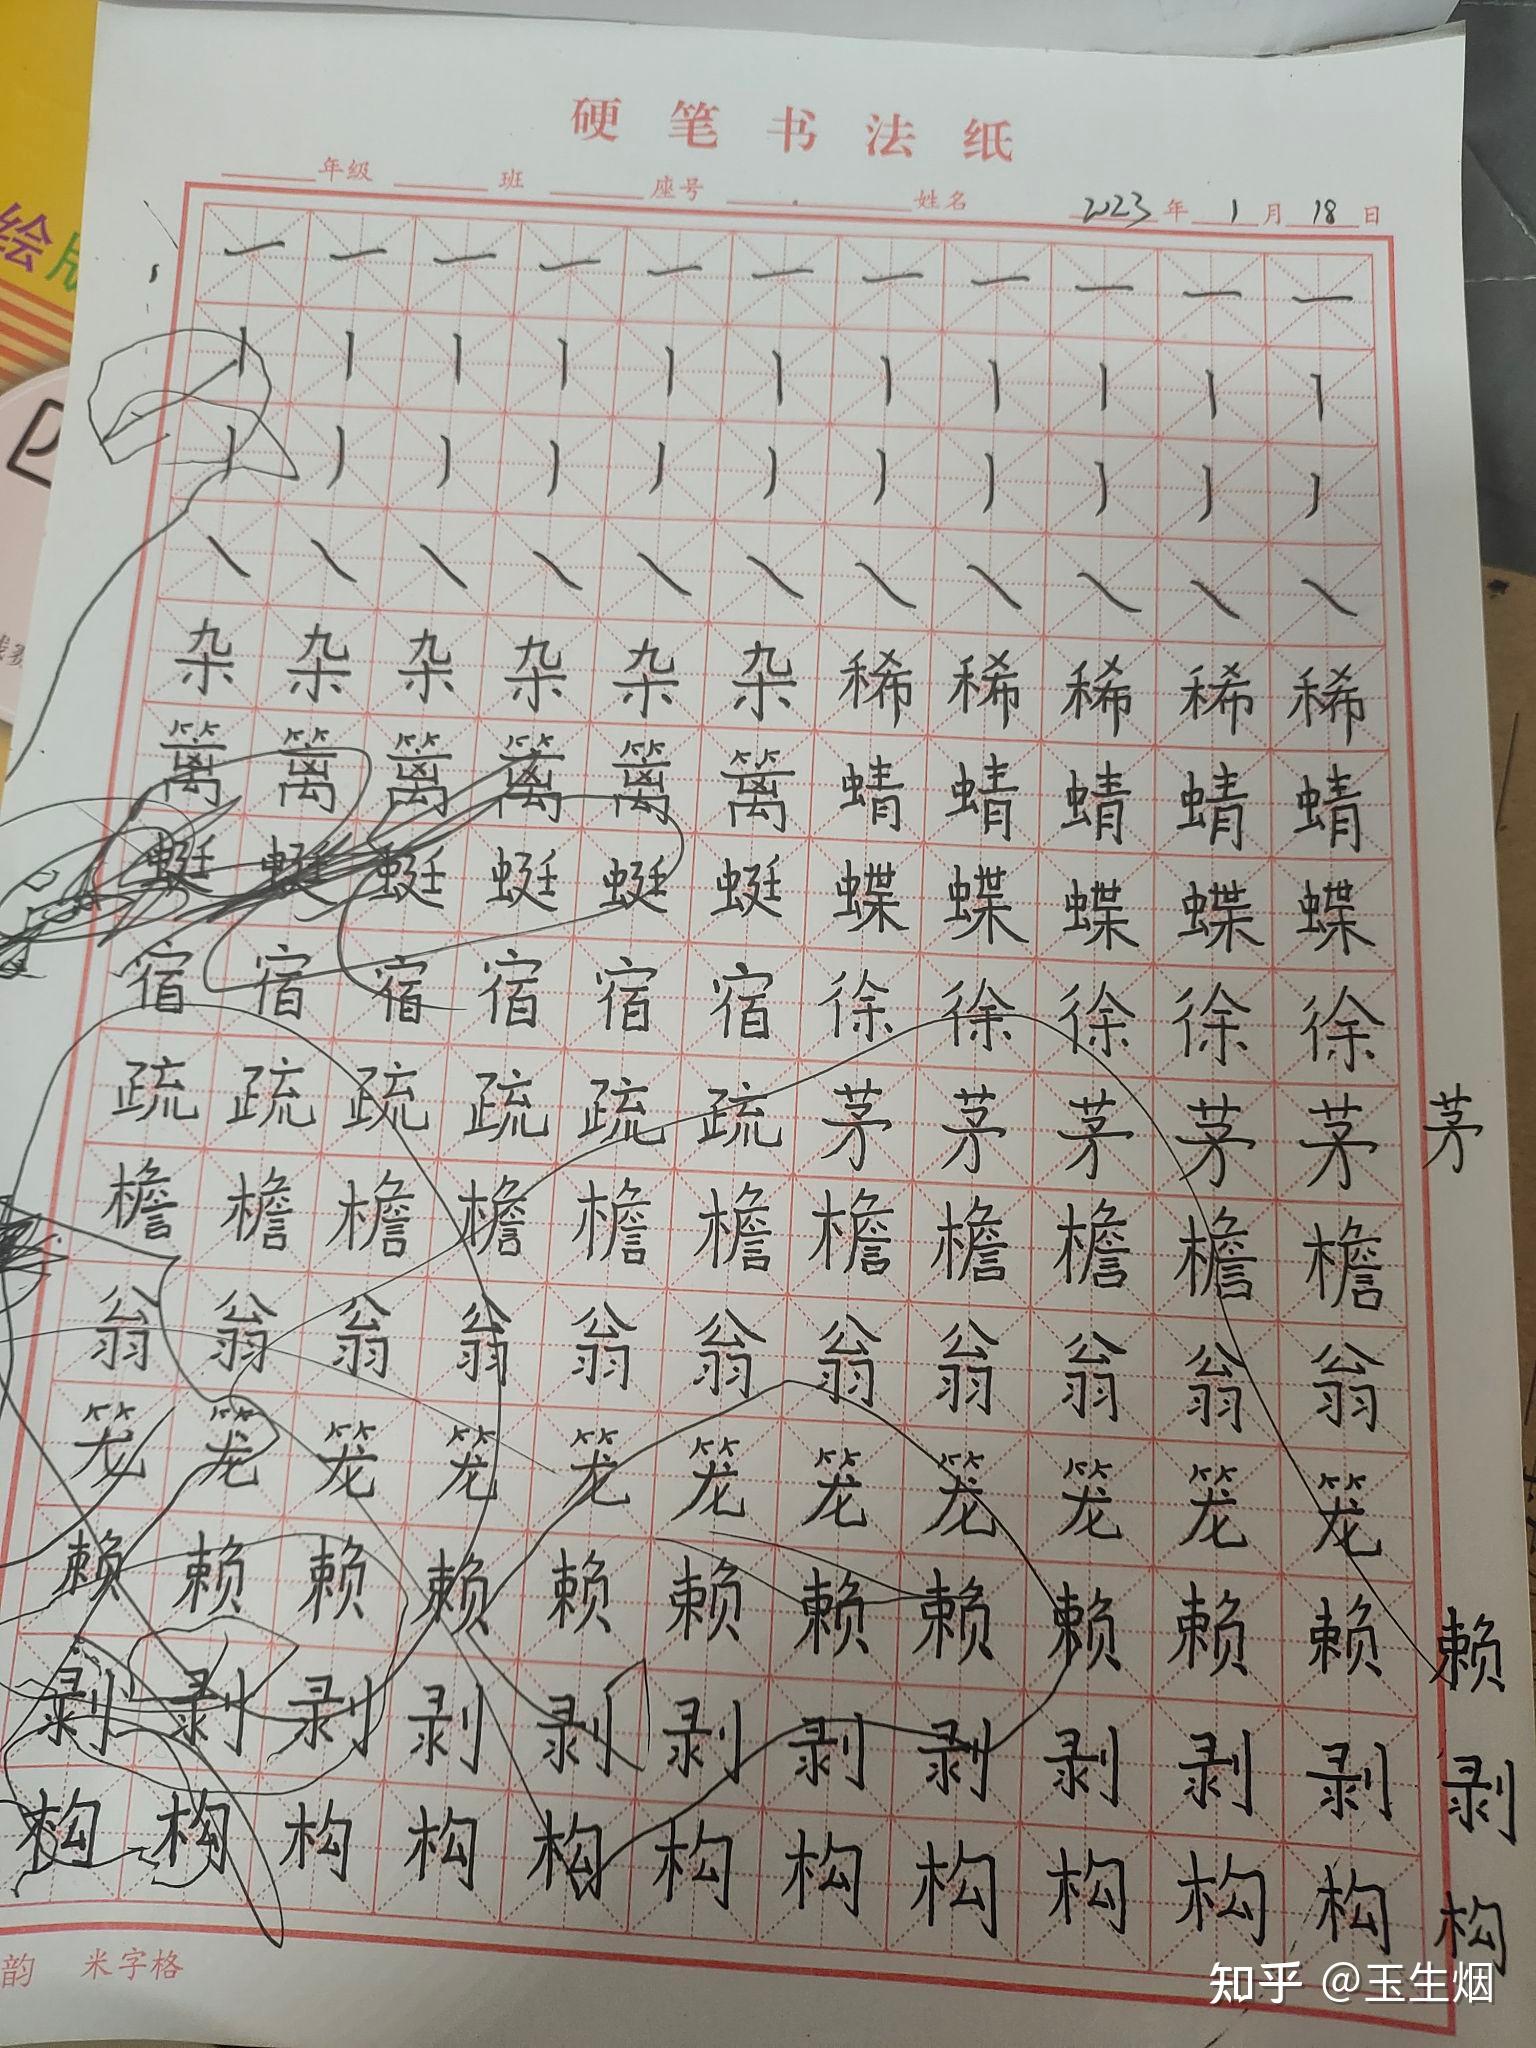 硬笔书法纸
年级 班 座号 姓名 2023年1月18日
一一一一一一一一一一一
丨丨丨丨丨丨丨丨丨丨丨
丿丿丿丿丿丿丿丿丿丿丿
㇏㇏㇏㇏㇏㇏㇏㇏㇏㇏㇏
杂杂杂杂杂杂稀稀稀稀稀
篱篱篱篱篱篱蜻蜻蜻蜻蜻
蜓蜓蜓蜓蜓蜓蝶蝶蝶蝶蝶
宿宿宿宿宿宿徐徐徐徐徐
疏疏疏疏疏疏茅茅茅茅茅 茅
檐檐檐檐檐檐檐檐檐檐檐
翁翁翁翁翁翁翁翁翁翁翁
笼笼笼笼笼笼笼笼笼笼笼
赖赖赖赖赖赖赖赖赖赖赖 赖
剥剥剥剥剥剥剥剥剥剥剥 剥
构构构构构构构构构构构 构
韵 米字格
知乎 @玉生烟
绘